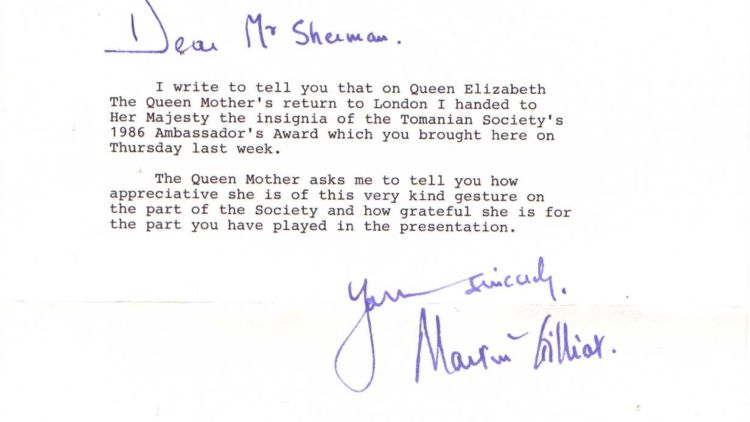 Dear Mr Sherman.
I write to tell you that on Queen Elizabeth
The Queen Mother's return to London I handed to
Her Majesty the insignia of the Tomanian Society's
1986 Ambassador's Award which you brought here on
Thursday last week.
The Queen Mother asks me to tell you how
appreciative she is of this very kind gesture on
the part of the Society and how grateful she is for
the part you have played in the presentation.
Yours sincerely.
Martin Gilliat.